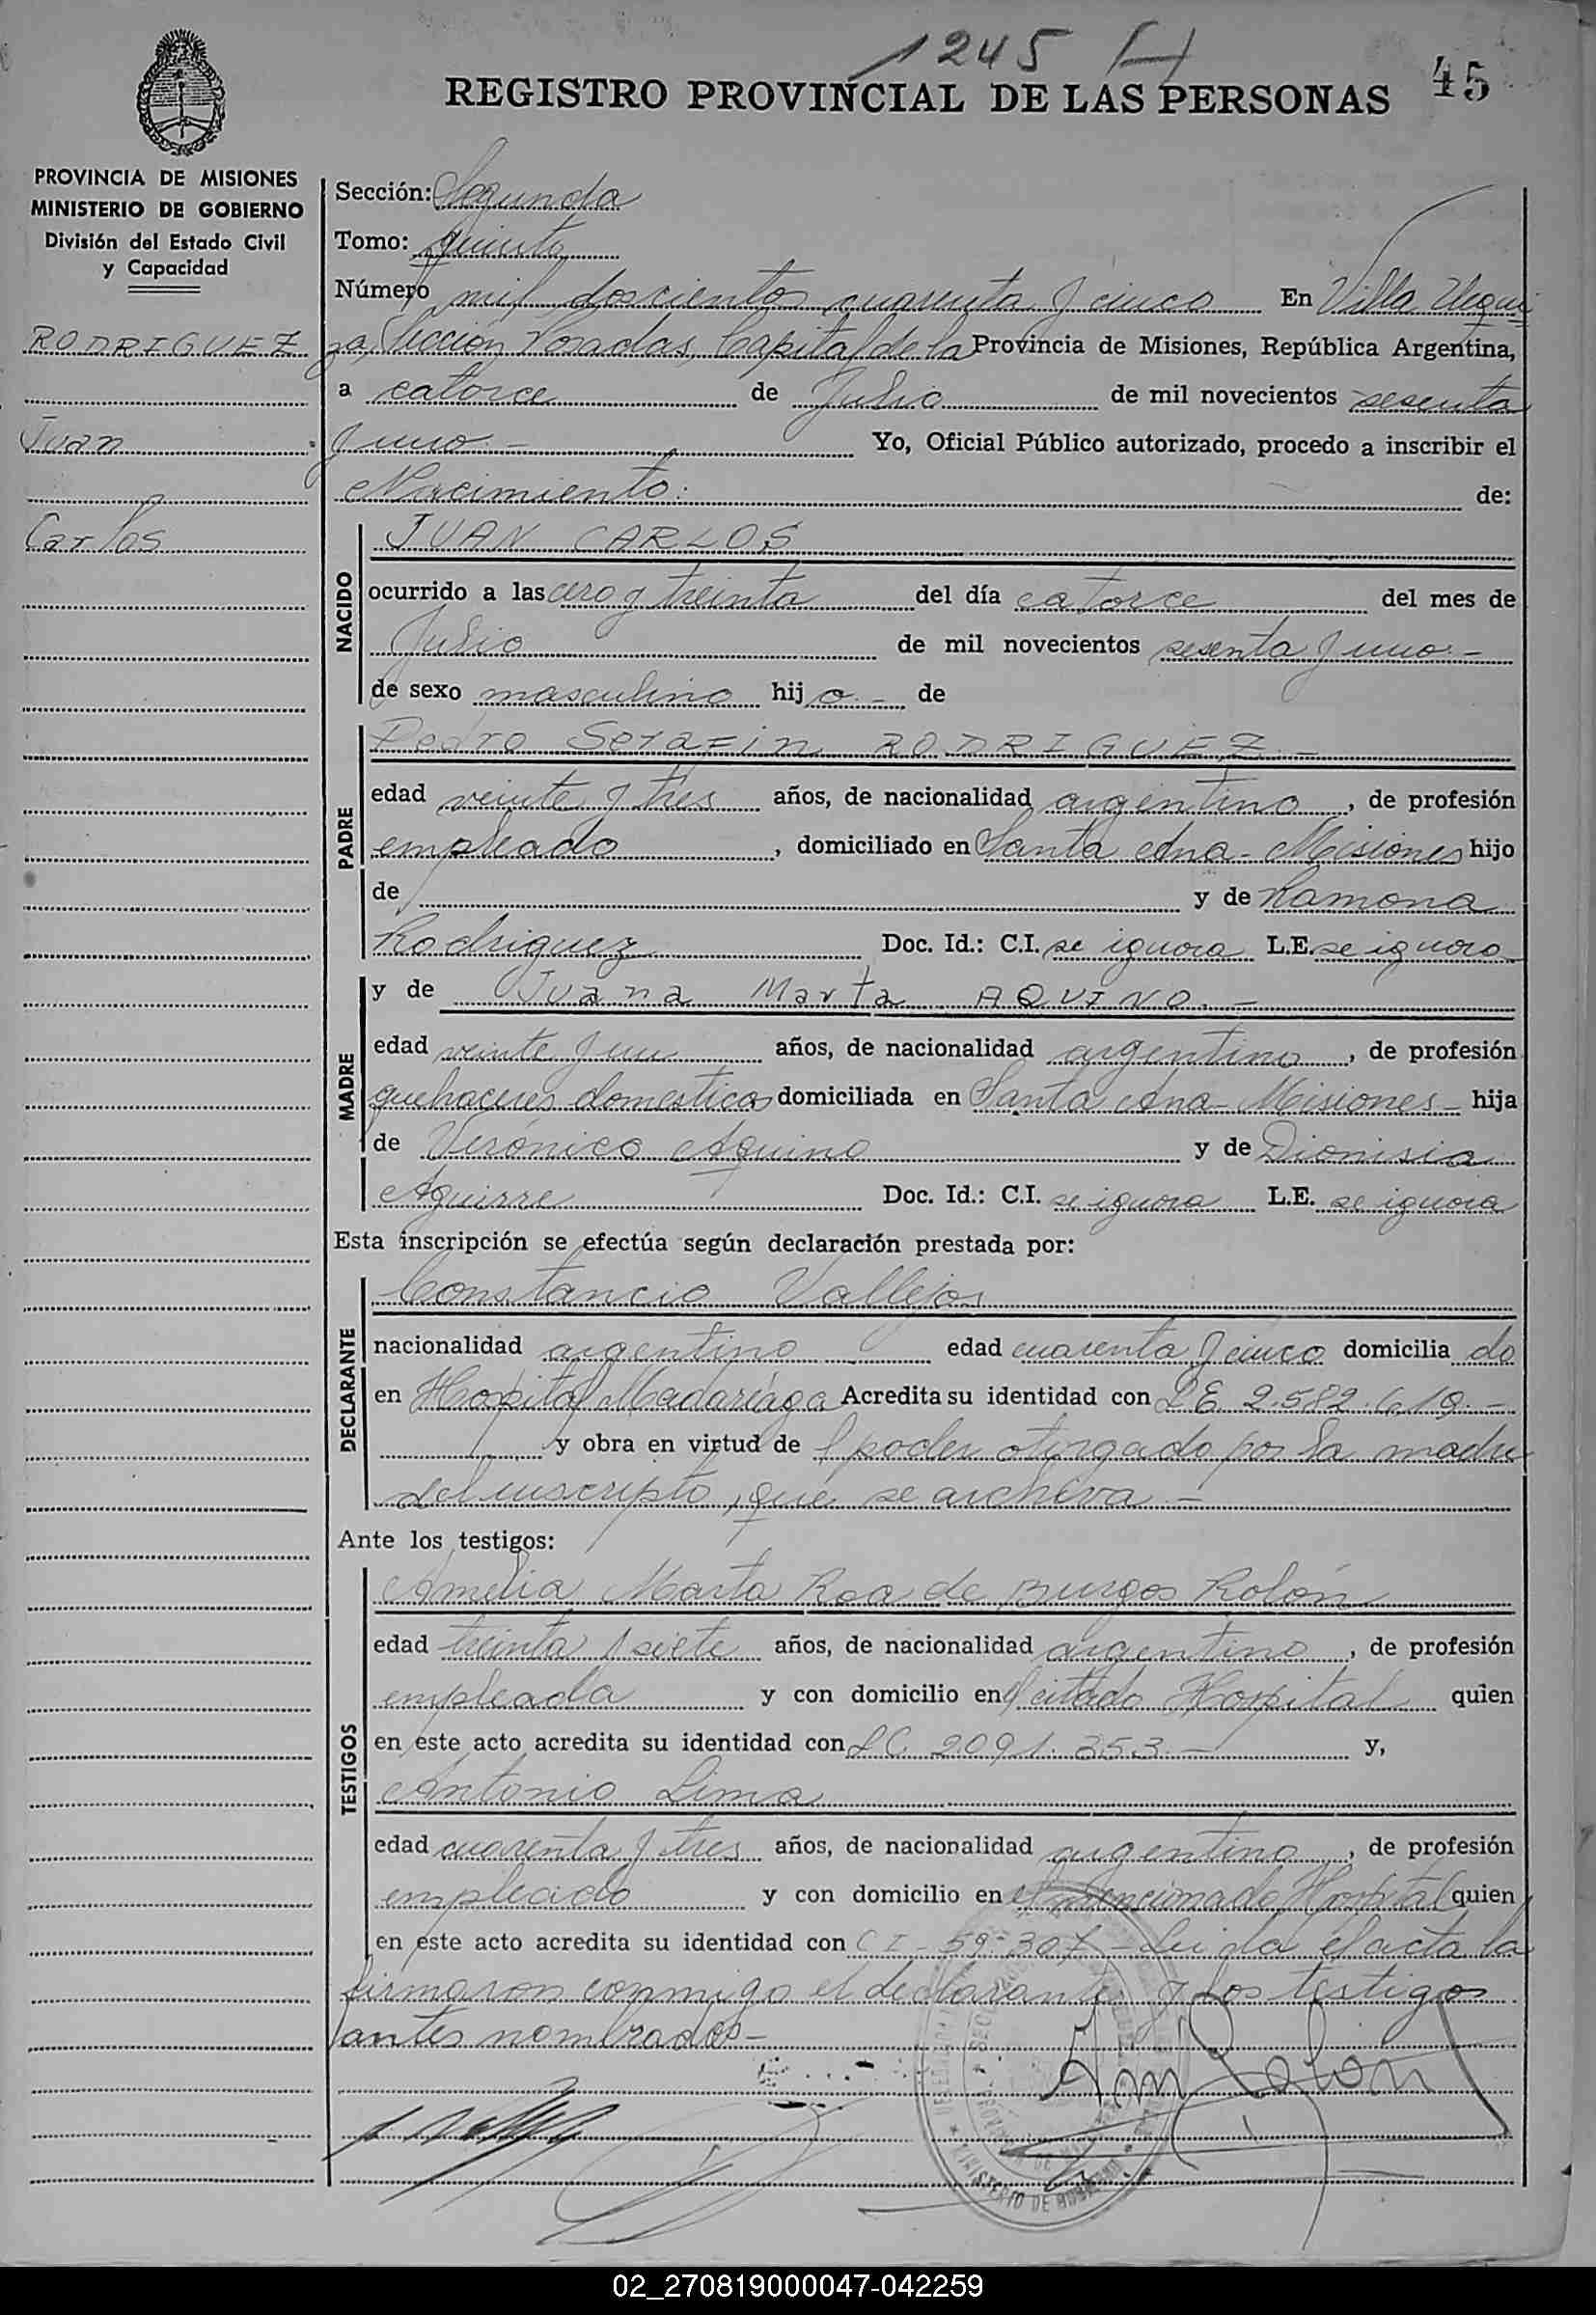 1245 H
REGISTRO PROVINCIAL DE LAS PERSONAS 45
PROVINCIA DE MISIONES
MINISTERIO DE GOBIERNO
División del Estado Civil
y Capacidad
RODRIGUEZ
Juan
Carlos
Sección: Segunda
Tomo: quinto
Número mil doscientos cuarenta y cinco En Villa Urqui
za, Sección Posadas, Capital de la Provincia de Misiones, República Argentina,
a catorce de Julio de mil novecientos sesenta
y uno.- Yo, Oficial Público autorizado, procedo a inscribir el
Nacimiento: de:
NACIDO
JUAN CARLOS
ocurrido a las cero y treinta del día catorce del mes de
Julio de mil novecientos sesenta y uno.-
de sexo masculino hij o.- de
PADRE
Pedro Serafin RODRIGUEZ.-
edad veinte y tres años, de nacionalidad argentino, de profesión
empleado, domiciliado en Santa Ana - Misiones hijo
de y de Ramona
Rodriguez Doc. Id.: C.I. se ignora L.E. se ignora
MADRE
y de Juana Marta AQUINO.-
edad veinte y un años, de nacionalidad argentina, de profesión
quehaceres domesticos domiciliada en Santa Ana - Misiones - hija
de Verónico Aquino y de Dionisia
Aguirre Doc. Id.: C.I. se ignora L.E. se ignora
Esta inscripción se efectúa según declaración prestada por:
DECLARANTE
Constancio Vallejos
nacionalidad argentino edad cuarenta y cinco domicilia do
en Hospital Madariaga Acredita su identidad con L E 2.582.619.-
y obra en virtud de l poder otorgado por la madre
del inscripto, que se archiva.-
Ante los testigos:
TESTIGOS
Amelia Marta Roa de Burgos Rolón
edad treinta y siete años, de nacionalidad argentina, de profesión
empleada y con domicilio en el citado Hospital quien
en este acto acredita su identidad con L C 2.091.353.- y,
Antonio Lima
edad cuarenta y tres años, de nacionalidad argentino, de profesión
empleado y con domicilio en el mencionado Hospital quien
en este acto acredita su identidad con C I - 59.307 - Leida el acta la
firmaron conmigo el declarante y los testigos
antes nombrados-
MINISTERIO DE GOBIERNO
02_270819000047-042259